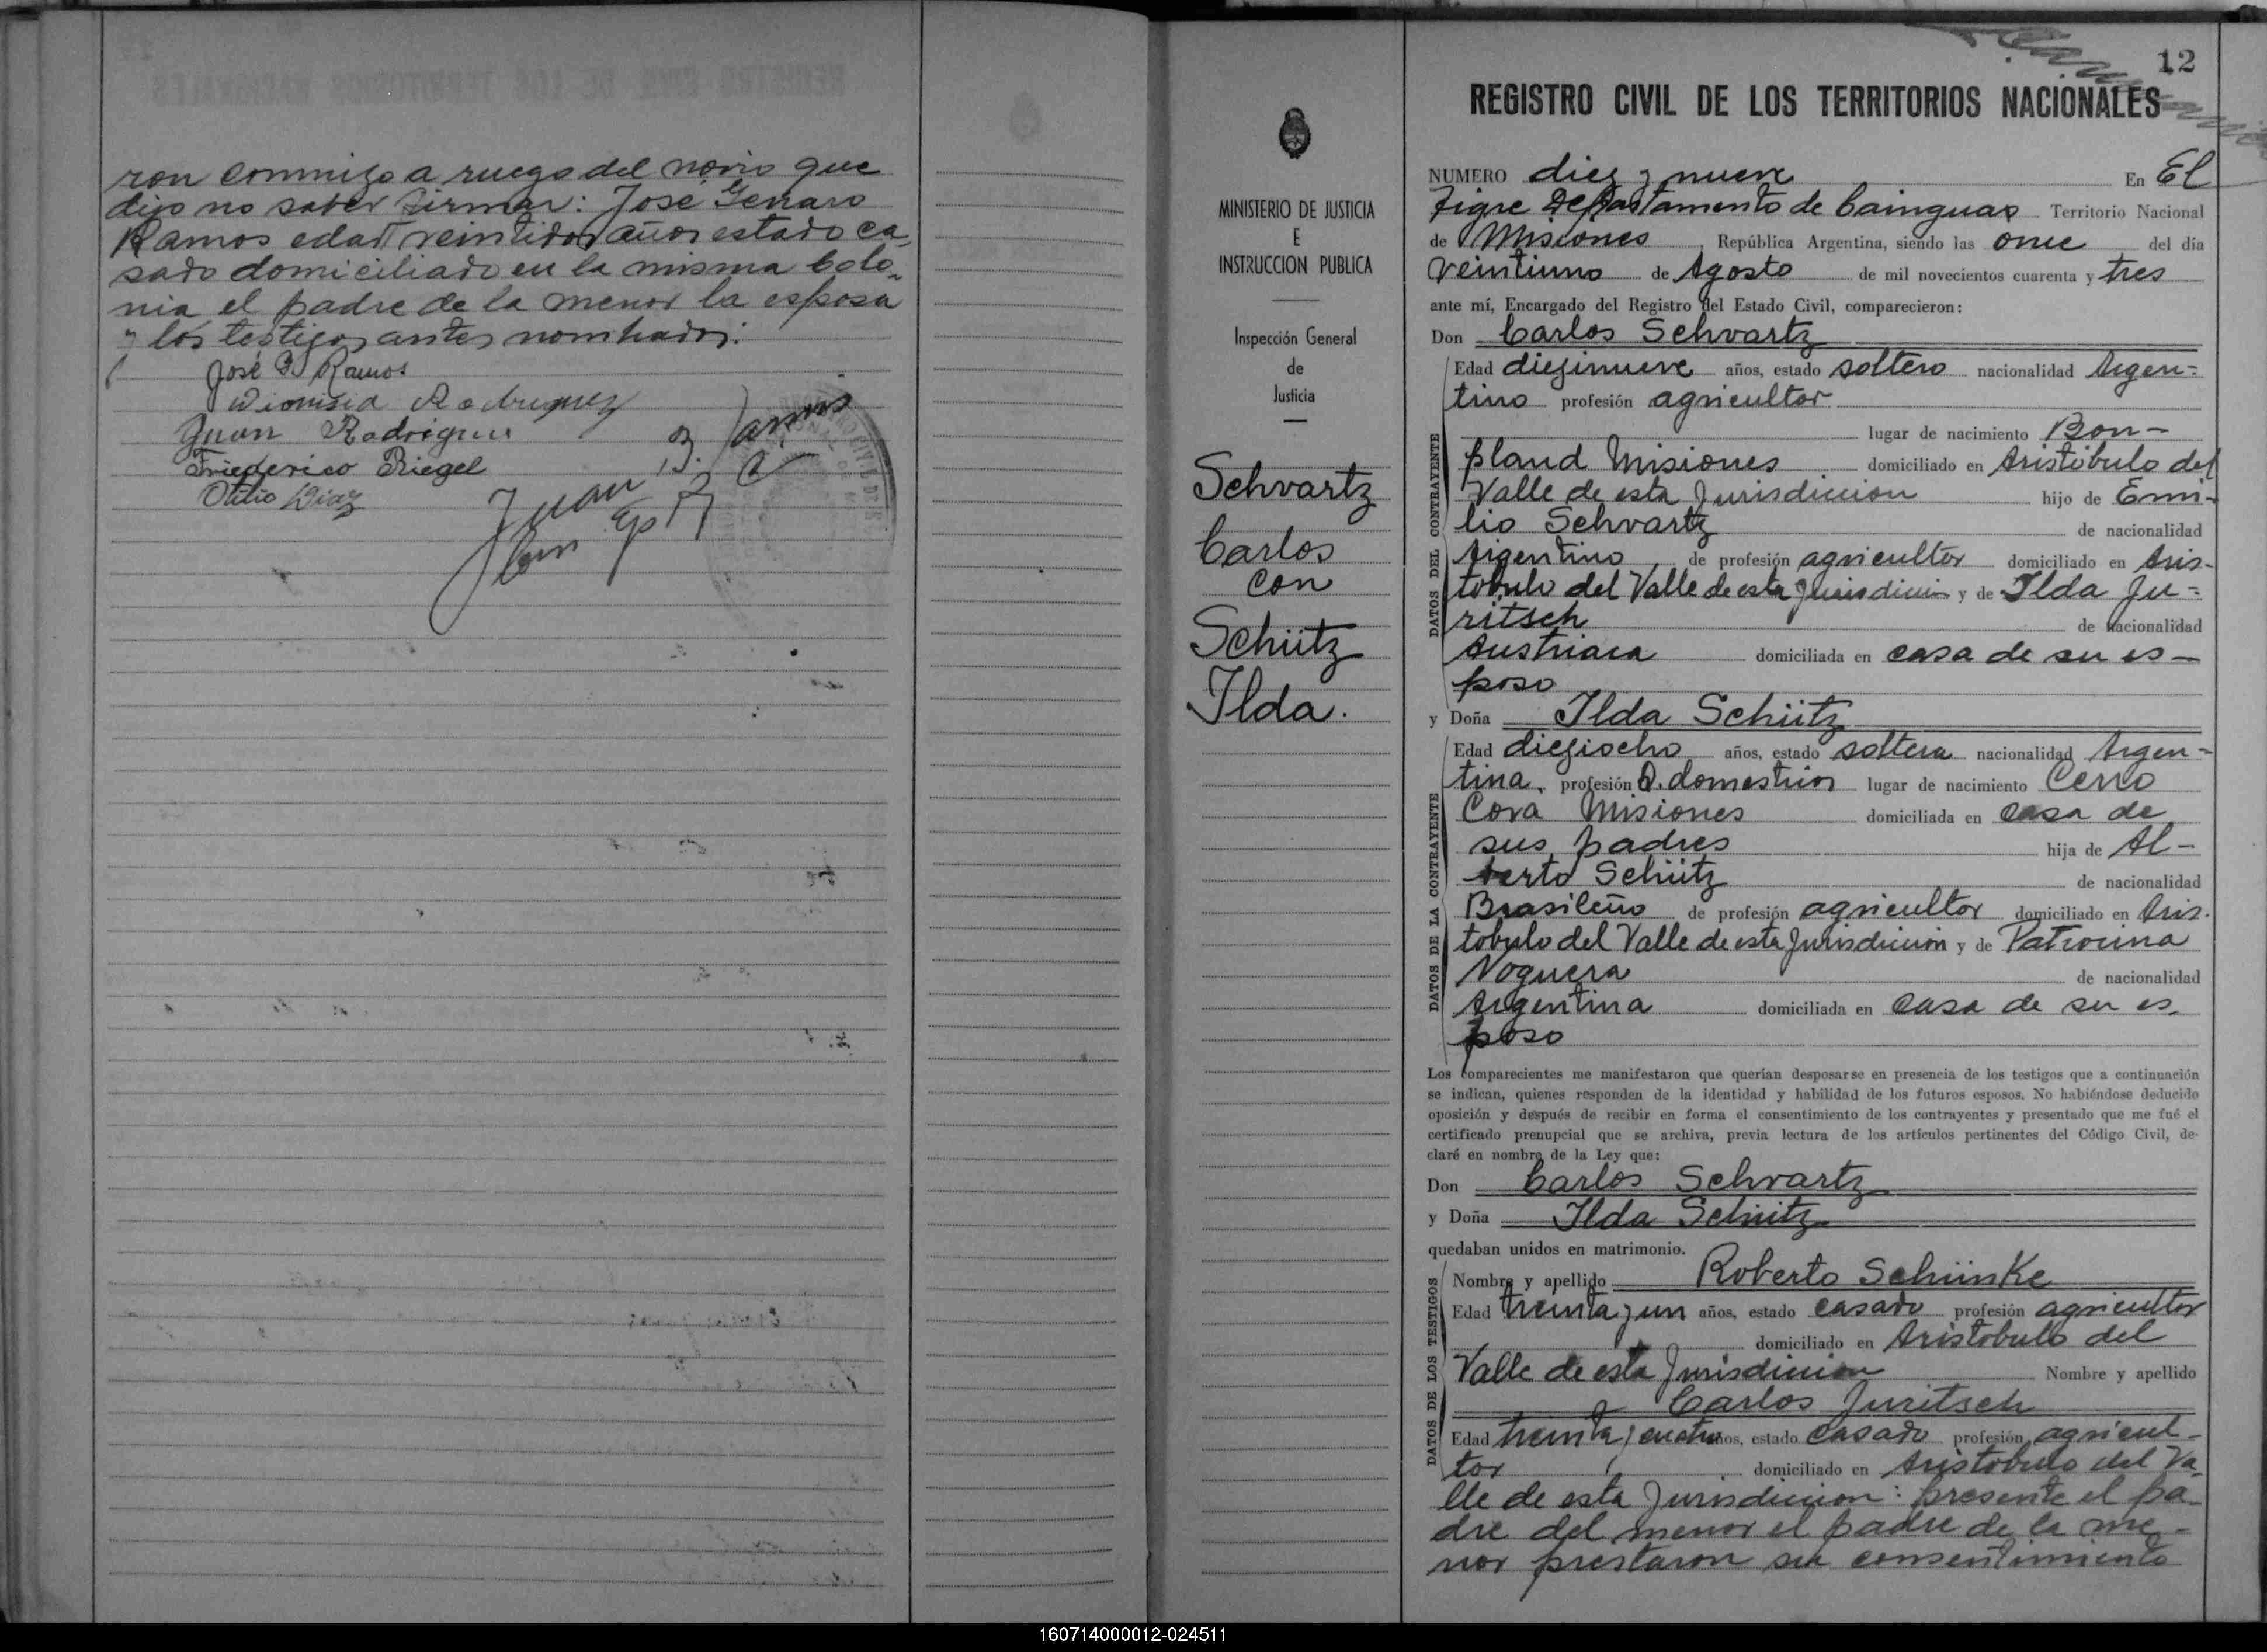 ron conmigo a ruego del novio que
dijo no saber firmar: José Genaro
Ramos edad veintidos años estado ca-
sado domiciliado en la misma Colo-
nia el padre de la menor la esposa
y los testigos antes nombrados.
José G. Ramos
Dionisia Rodriguez
Juan Rodriguez
Friederico Riegel
Otilio Diaz
Juan B. Ramos
MINISTERIO DE JUSTICIA
E
INSTRUCCION PUBLICA
Inspección General
de
Justicia
Schvartz
Carlos
con
Schütz
Ilda.
12
REGISTRO CIVIL DE LOS TERRITORIOS NACIONALES
NUMERO diez y nueve En El
Tigre Departamento de Cainguas Territorio Nacional
de Misiones, República Argentina, siendo las once del día
veintiuno de Agosto de mil novecientos cuarenta y tres
ante mí, Encargado del Registro del Estado Civil, comparecieron:
Don Carlos Schvartz
DATOS DEL CONTRAYENTE
Edad diesinueve años, estado soltero nacionalidad Argen-
tino profesión agricultor
lugar de nacimiento Bon-
pland Misiones domiciliado en Aristóbulo del
Valle de esta Jurisdiccion hijo de Emi-
lio Schvartz de nacionalidad
Argentino de profesión agricultor domiciliado en Aris-
tobulo del Valle de esta Jurisdicion y de Ilda Ju-
ritsch de nacionalidad
Austriaca domiciliada en casa de su es-
poso
y Doña Ilda Schütz
DATOS DE LA CONTRAYENTE
Edad diesiocho años, estado soltera nacionalidad Argen-
tina, profesión Q. domesticos lugar de nacimiento Cerro
Cora Misiones domiciliada en casa de
sus padres hija de Al-
berto Schütz de nacionalidad
Brasileño de profesión agricultor domiciliado en Aris-
tobulo del Valle de esta Jurisdiccion y de Patrocina
Noguera de nacionalidad
Argentina domiciliada en casa de su es-
poso
Los comparecientes me manifestaron que querían desposarse en presencia de los testigos que a continuación
se indican, quienes responden de la identidad y habilidad de los futuros esposos. No habiéndose deducido
oposición y después de recibir en forma el consentimiento de los contrayentes y presentado que me fué el
certificado prenupcial que se archiva, previa lectura de los artículos pertinentes del Código Civil, de-
claré en nombre de la Ley que:
Don Carlos Schvartz
y Doña Ilda Schütz
quedaban unidos en matrimonio.
DATOS DE LOS TESTIGOS
Nombre y apellido Roberto Schünke
Edad treinta y un años, estado casado profesión agricultor
domiciliado en Aristobulo del
Valle de esta Jurisdicion Nombre y apellido
Carlos Juritsch
Edad treinta y cuatro años, estado casado profesión agricul-
tor domiciliado en Aristobulo del Va-
lle de esta Jurisdiccion: presente el pa-
dre del menor el padre de la me-
nor prestaron su consentimiento
160714000012-024511